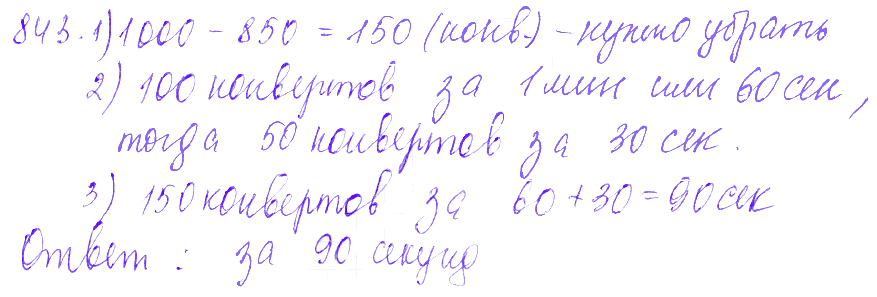 843. 1) 1000 - 850 = 150 (конв.) - нужно убрать
2) 100 конвертов за 1 мин или 60 сек,
тогда 50 конвертов за 30 сек.
3) 150 конвертов за 60 + 30 = 90 сек
Ответ : за 90 секунд